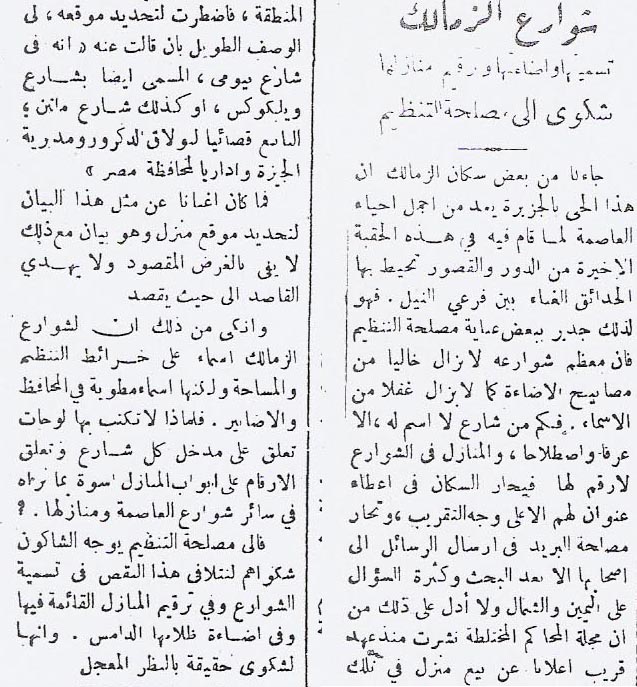 شوارع الزمالك
تسميتها واضاءتها وترقيم منازلها
شكوى الى مصلحة التنظيم
جاءنا من بعض سكان الزمالك ان
هذا الحى بالجزيرة يعد من اجمل احياء
العاصمة لما قام فيه في هذه الحقبة
الاخيرة من الدور والقصور تحيط بها
الحدائق الغناء بين فرعي النيل . فهو
لذلك جدير ببعض عناية مصلحة التنظيم
فان معظم شوارعه لا يزال خاليا من
مصابيح الاضاءة كما لا يزال غفلا من
الاسماء . فكم من شارع لا اسم له ، الا
عرفا واصطلاحا ، والمنازل فى الشوارع
لا رقم لها فيحار السكان فى اعطاء
عنوان لهم الا على وجه التقريب ، وتحار
مصلحة البريد فى ارسال الرسائل الى
اصحابها الا بعد البحث وكثرة السؤال
على اليمين والشمال ولا أدل على ذلك من
ان مجلة المحاكم المختلطة نشرت منذ عهد
قريب اعلانا عن بيع منزل في تلك
المنطقة ، فاضطرت لتحديد موقعه ، لى
الوصف الطويل بان قالت عنه « انه فى
شارع بيومى ، المسمى ايضا بشارع
ويلكوكس ، او كذلك شارع ماتن ؛
التابع قضائيا لبولاق الدكرور ومديرية
الجيزة واداريا لمحافظة مصر »
فما كان اغنانا عن مثل هذا البيان
لتحديد موقع منزل وهو بيان مع ذلك
لا يفى بالغرض المقصود ولا يهدي
القاصد الى حيث يقصد
وانكى من ذلك ان لشوارع
الزمالك اسماء على خرائط التنظيم
والمساحة ولكنها اسماء مطوية في المحافظ
والاضابير . فلماذا لا تكتب بها لوحات
تعلق على مدخل كل شارع وتعلق
الارقام على ابواب المنازل اسوة بما نراه
في سائر شوارع العاصمة ومنازلها . ؟
فالى مصلحة التنظيم يوجه الشاكون
شكواهم لتتلافى هذا النقص فى تسمية
الشوارع وفي ترقيم المنازل القائمة فيها
وفى اضاءة ظلامها الدامس . وانها
لشكوى حقيقة بالنظر المعجل